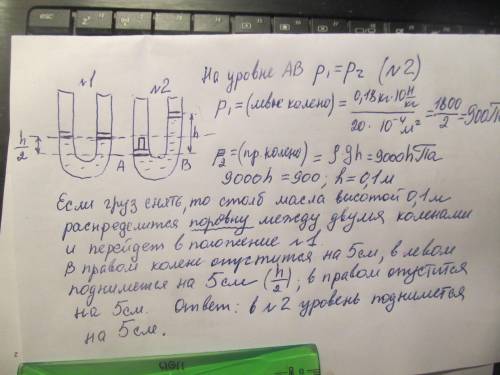 №1 №2
На уровне АВ p₁=p₂ (№2)
p₁=(левое колено)= 0,18кг·10 Н/кг / 20·10⁻⁴м² = 1800/2 = 900Па
h/2 А В h
p₂=(пр.колено)= ρgh=9000hПа
9000h=900; h=0,1м
Если груз снять, то столб масла высотой 0,1м
распределится поровну между двумя коленами
и перейдет в положение №1.
В правом колене опустится на 5см, в левом
поднимется на 5см (h/2); в правом опустится
на 5см. Ответ: в №2 уровень поднимется
на 5см.